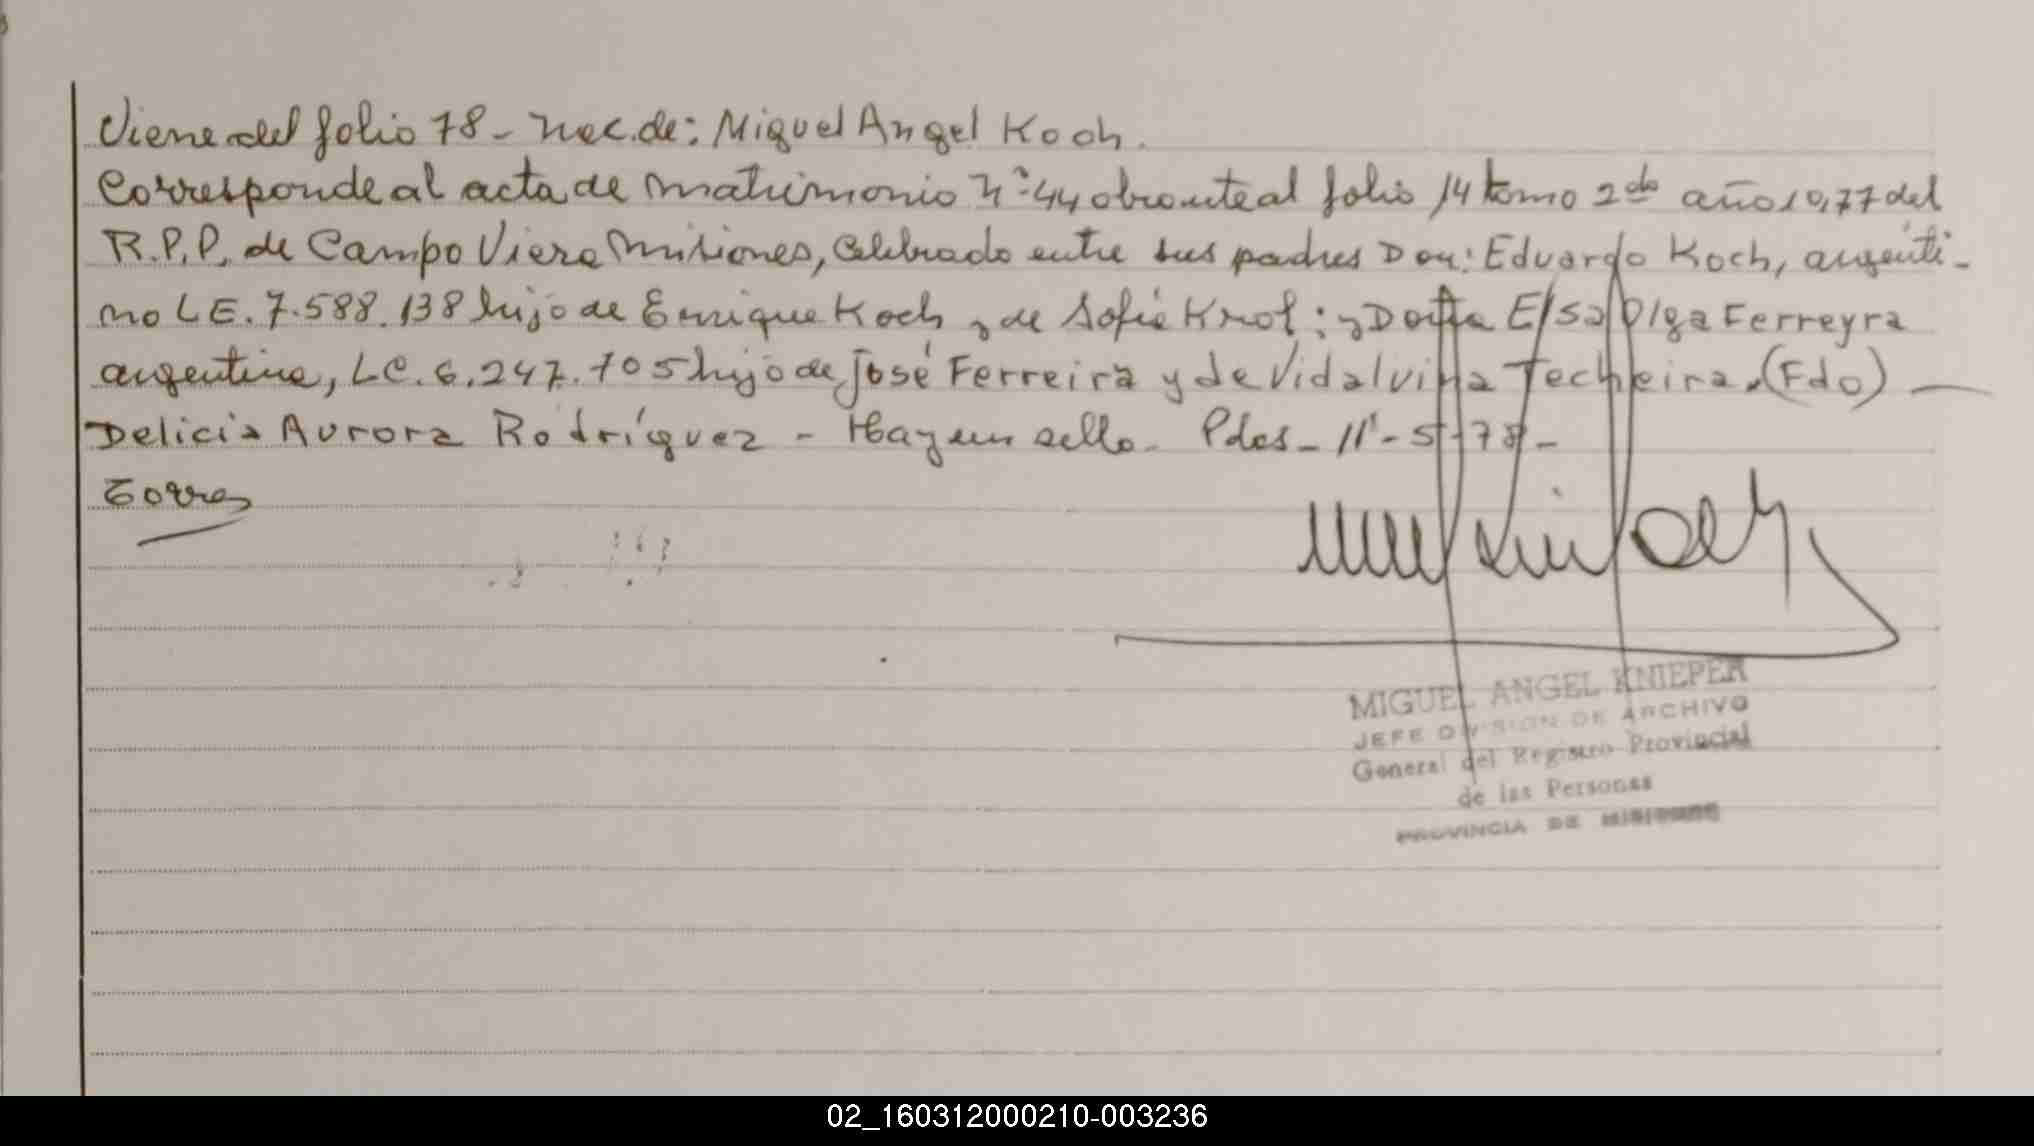 Viene del folio 78 - Nac. de: Miguel Angel Koch.
Corresponde al acta de Matrimonio Nº 44 obrante al folio 14 tomo 2do año 1977 del
R.P.P. de Campo Viera Misiones, Celebrado entre sus padres Don: Eduardo Koch, argenti-
no L E. 7.588.138 hijo de Enrique Koch y de Sofia Krol: y Doña Elsa Olga Ferreyra
argentina, L C. 6.247.705 hijo de José Ferreira y de Vidalvina Techeira. (Fdo) —
Delicia Aurora Rodríguez - Hay un sello. Pdas - 11 - 5 - 78 -
Torres
MIGUEL ANGEL KNIEPER
JEFE DIVISION DE ARCHIVO
General del Registro Provincial
de las Personas
PROVINCIA DE MISIONES
02_160312000210-003236